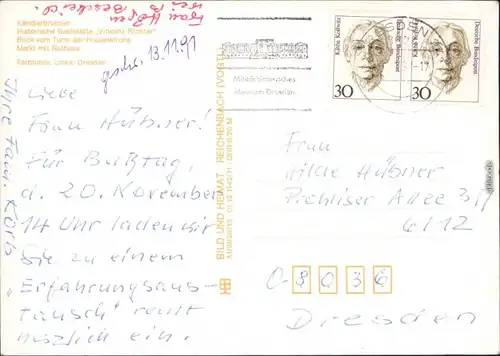 Kändlerbrunnen
Historische Gaststätte "Vinzenz Richter"
Blick vom Turm der Frauenkirche
Markt mit Rathaus
Farbfotos: Linke, Dresden
Frau Höpfen
Bescheid
gesch. 13.11.91
Liebe
Frau Hübner!
Für Bußtag,
d. 20. November
14 Uhr laden wir
Sie zu einem
"Erfahrungsaus-
tausch" recht
herzlich ein.
Ihre Fam.
BILD UND HEIMAT REICHENBACH (VOGTL)
Militärhistorisches
Museum Dresden
Käthe Kollwitz
Deutsche Bundespost
30
Käthe Kollwitz
Deutsche Bundespost
30
Frau
Hilde Hübner
Allee
6/12
O-8036
Dresden